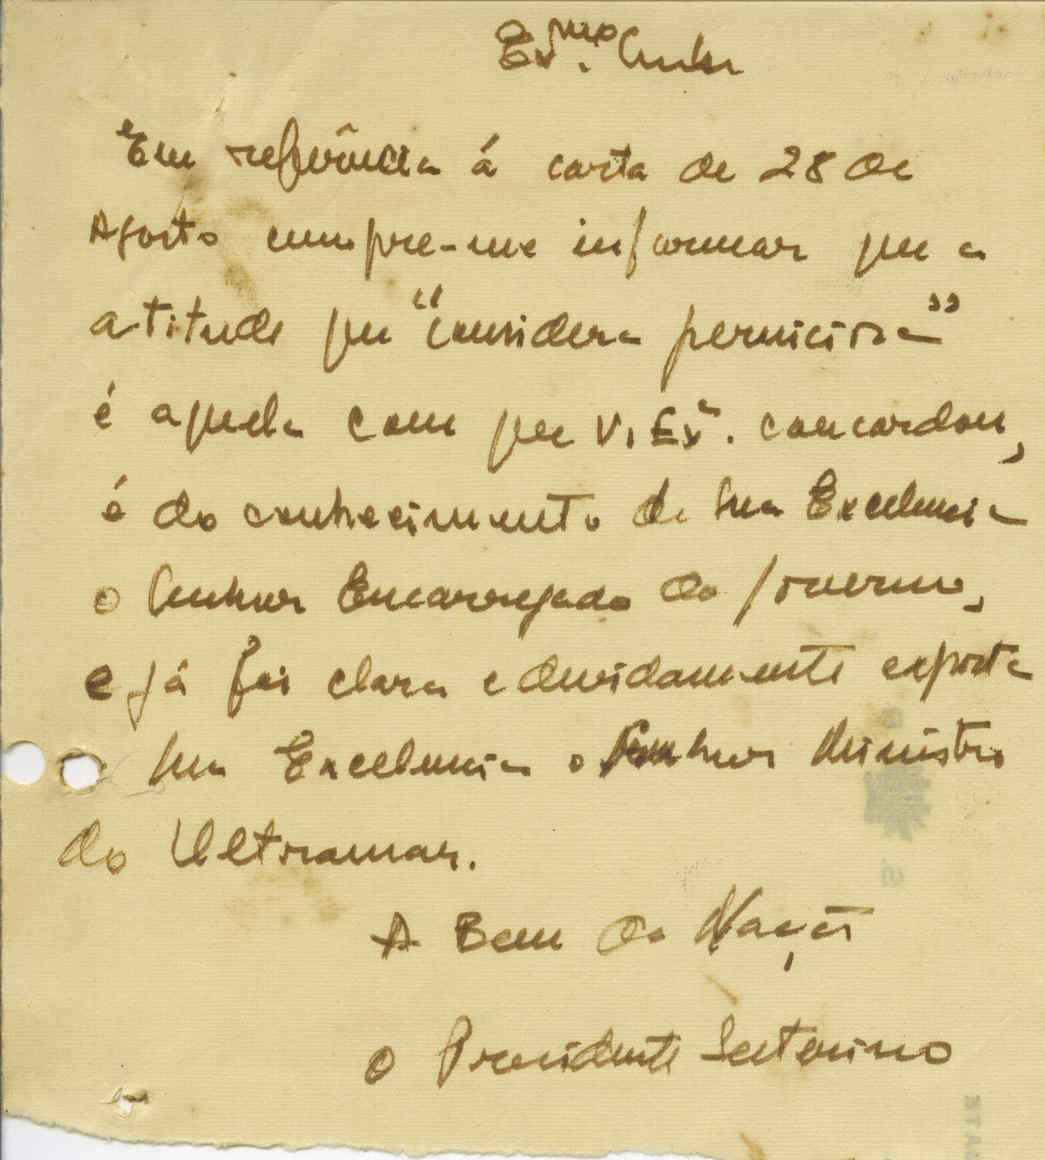 Ex.mo Senhor
Em referência á carta de 28 de
Agosto cumpre-me informar que a
atitude que "considera perniciosa"
é aquela com que V. Exª. concordou,
é do conhecimento de Sua Excelencia
o Senhor Encarregado do Governo,
e já foi clara e devidamente exposta
Sua Excelencia o Senhor Ministro
do Ultramar.
A Bem da Nação
O Presidente Interino